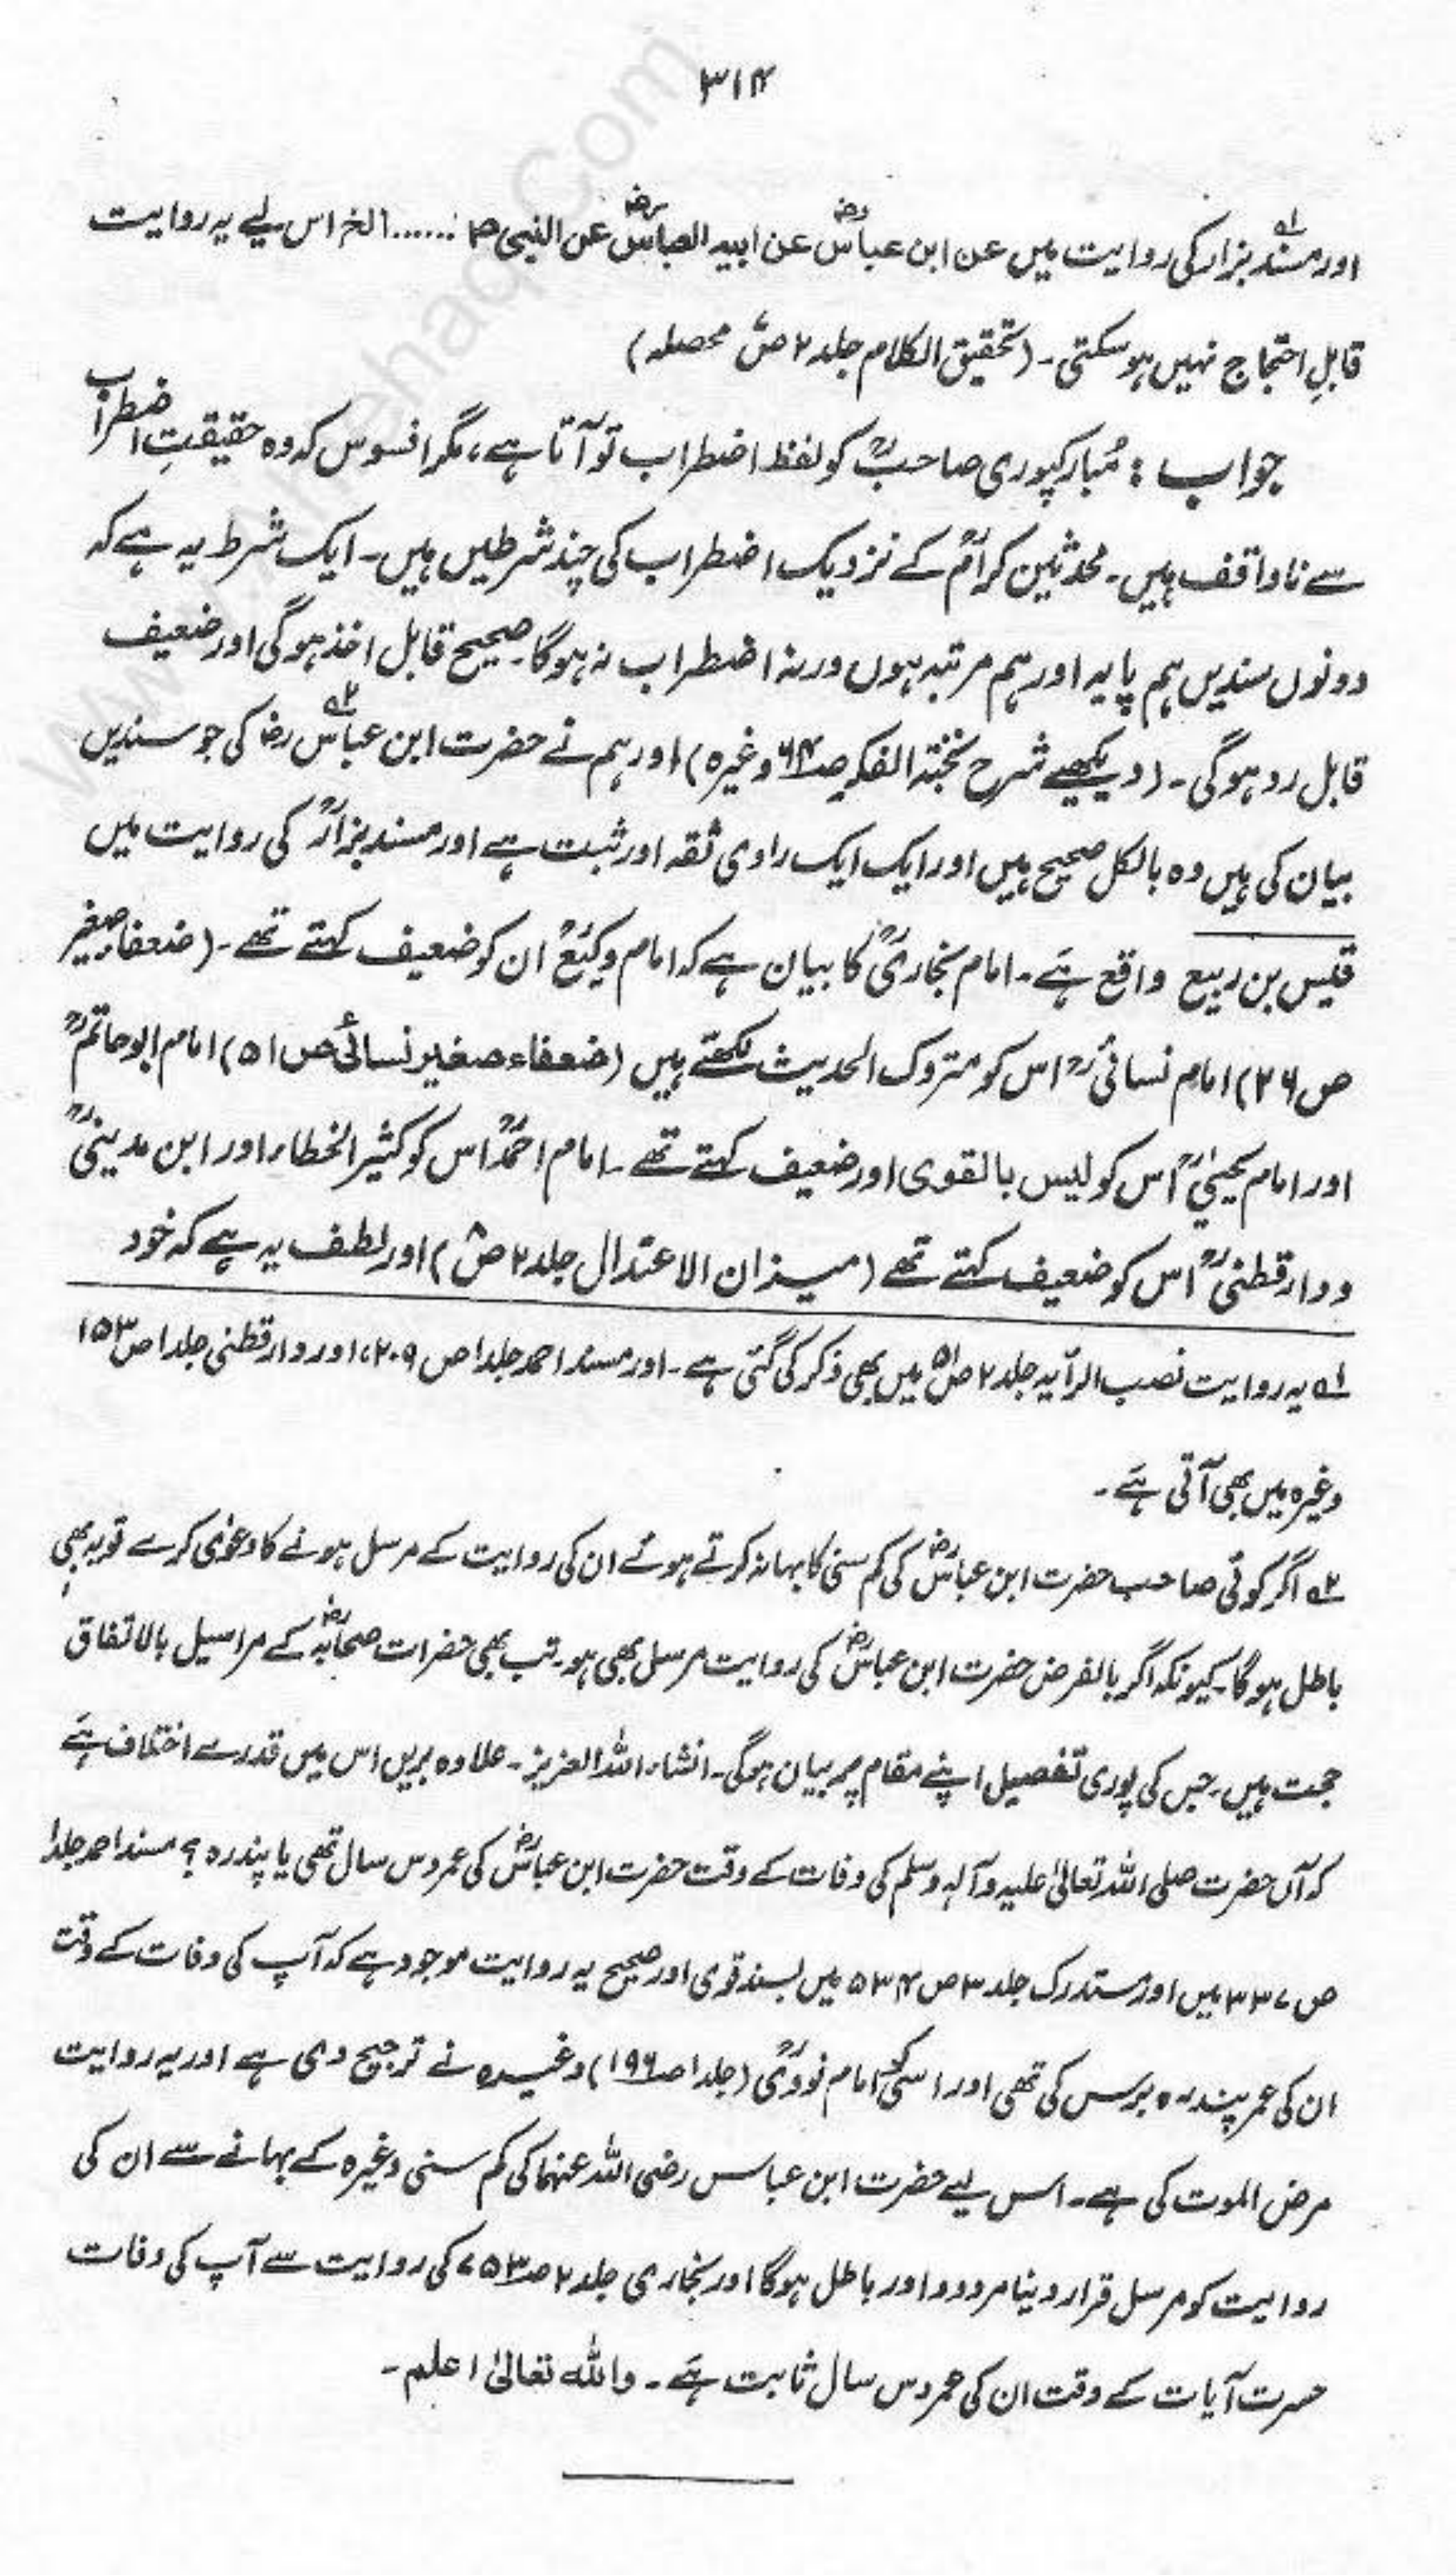 ۳۱۴
اور مسند بزار۱؎ کی روایت میں عن ابن عباسؓ عن ابیہ العباسؓ عن النبی ؐ ...... الخ اس لیے یہ روایت
قابلِ احتجاج نہیں ہو سکتی۔ (تحقیق الکلام جلد ۲ ص محصلہ)
جواب : مُبارکپوری صاحبؒ کو لفظ اضطراب تو آتا ہے، مگر افسوس کہ وہ حقیقتِ اضطراب
سے ناواقف ہیں۔ محدثین کرامؒ کے نزدیک اضطراب کی چند شرطیں ہیں۔ ایک شرط یہ ہے کہ
دونوں سندیں ہم پایہ اور ہم مرتبہ ہوں ورنہ اضطراب نہ ہوگا۔ صحیح قابل اخذ ہوگی اور ضعیف
قابل رد ہوگی۔ (دیکھیے شرح نخبۃ الفکر صـ۶۴ وغیرہ) اور ہم نے حضرت ابن عباس۲؎ رضؓ کی جو سندیں
بیان کی ہیں وہ بالکل صحیح ہیں اور ایک ایک راوی ثقہ اور ثبت ہے اور مسند بزارؒ کی روایت میں
قیس بن ربیع واقع ہَے۔ امام بخاریؒ کا بیان ہے کہ امام وکیعؒ ان کو ضعیف کہتے تھے۔ (ضعفاء صغیر
ص ۲۶) امام نسائیؒ اس کو متروک الحدیث لکھتے ہیں (ضعفاء صغیر نسائی ص ۵۱) امام ابو حاتمؒ
اور امام یحییٰؒ اس کو لیس بالقوی اور ضعیف کہتے تھے۔ امام احمدؒ اس کو کثیر الخطاء اور ابن مدینیؒ
و دارقطنیؒ اس کو ضعیف کہتے تھے (میزان الاعتدال جلد ۲ ص) اور لطف یہ ہے کہ خود
۱؎ یہ روایت نصب الرّایہ جلد ۲ صـ۵۱ میں بھی ذکر کی گئی ہے۔ اور مسند احمد جلد ۱ ص ۲۰۹، اور دارقطنی جلد ۱ ص ۱۵۳
وغیرہ میں بھی آتی ہَے۔
۲؎ اگر کوئی صاحب حضرت ابن عباسؓ کی کم سنی کا بہانہ کرتے ہوئے ان کی روایت کے مرسل ہونے کا دعوٰی کرے تو یہ بھی
باطل ہوگا۔ کیونکہ اگر بالفرض حضرت ابن عباسؓ کی روایت مرسل بھی ہو۔ تب بھی حضرات صحابہؓ کے مراسیل بالاتفاق
حجت ہیں۔ جس کی پوری تفصیل اپنے مقام پر بیان ہوگی۔ انشاء اللہ العزیز۔ علاوہ بریں اس میں قدرے اختلاف ہَے
کہ آں حضرت صلی اللہ تعالیٰ علیہ وآلہٖ وسلم کی وفات کے وقت حضرت ابن عباسؓ کی عمر دس سال تھی یا پندرہ ؟ مسند احمد جلد ۱
ص ۳۳۷ میں اور مستدرک جلد ۳ ص ۵۳۴ میں بسند قوی اور صحیح یہ روایت موجود ہے کہ آپ کی وفات کے وقت
ان کی عمر پندرہ برس کی تھی اور اسی کو امام نوویؒ (جلد ۱ صـ۱۹۶) وغیرہ نے ترجیح دی ہے اور یہ روایت
مرض الموت کی ہے۔ اس لیے حضرت ابن عباس رضی اللہ عنہما کی کم سنی وغیرہ کے بہانے سے ان کی
روایت کو مرسل قرار دینا مردود اور باطل ہوگا اور بخاری جلد ۲ صـ۷۵۳ کی روایت سے آپ کی وفات
حسرت آیات کے وقت ان کی عمر دس سال ثابت ہَے۔ واللہ تعالیٰ اعلم۔